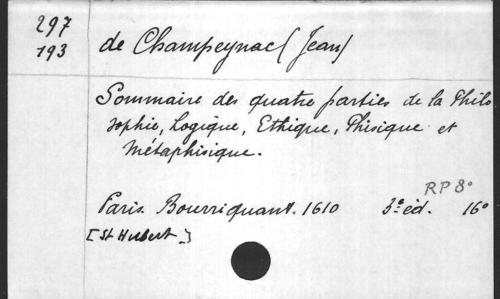 297
193
de Champeynac (Jean)
Sommaire des quatre parties de la Philo
sophie, Logique, Ethique, Phisique et
Métaphisique.
RP 8°
Paris. Bourriquant. 1610 3e éd. 16°
[St Hubert.]